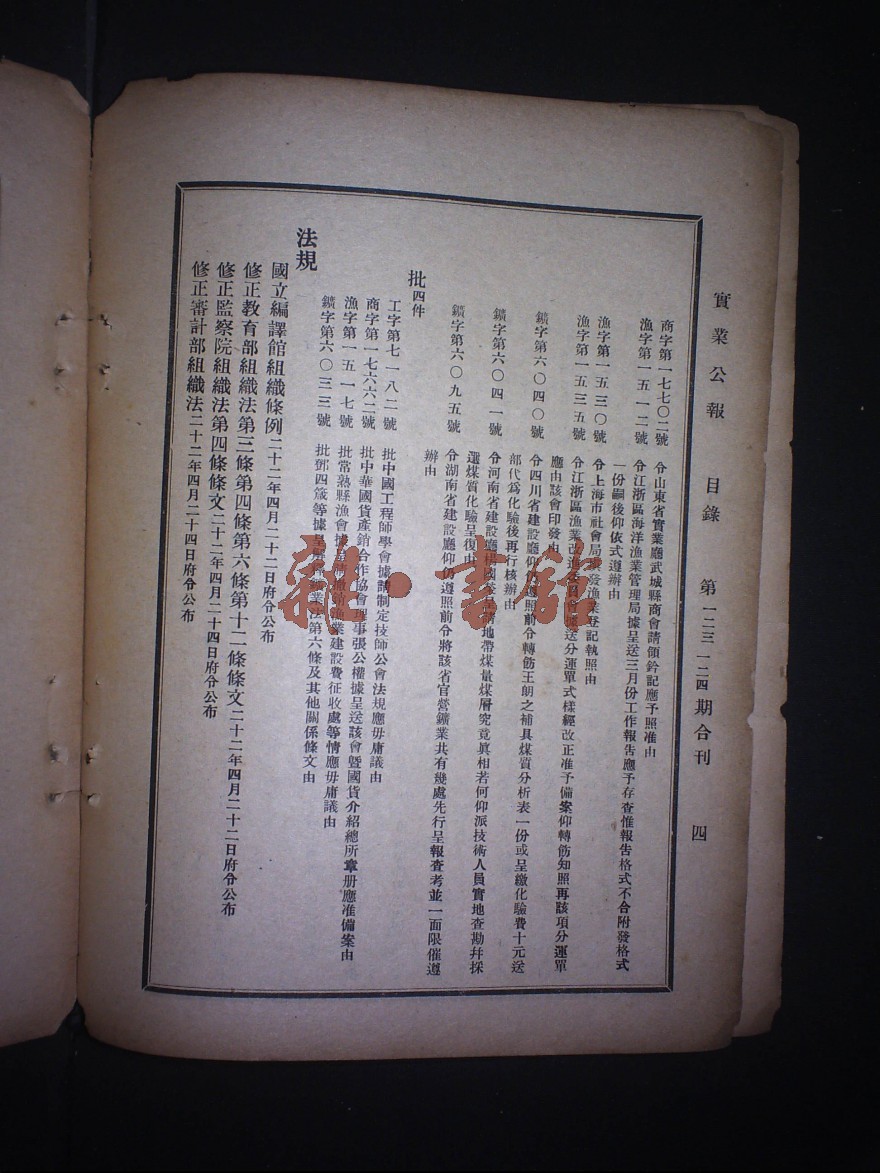 實業公報 目錄 第一二三 一二四期合刊 四
商字第一七七〇二號 令山東省實業廳武城縣商會請領鈐記應予照准由
漁字第一五一二號 令江浙區海洋漁業管理局據呈送三月份工作報告應予存查惟報告格式不合附發格式
一份嗣後仰依式遵辦由
漁字第一五三〇號 令上海市社會局 發漁業登記執照由
漁字第一五三五號 令江浙區漁業改進委員會 送分運單式樣經改正准予備案仰轉飭知照再該項分運單
應由該會印發由
鑛字第六〇四〇號 令四川省建設廳仰 遵照前令轉飭王朗之補具煤質分析表一份或呈繳化驗費十元送
部代爲化驗後再行核辦由
鑛字第六〇四一號 令河南省建設廳 地帶煤量煤層究竟眞相若何仰派技術人員實地查勘幷採
選煤質化驗呈復由
鑛字第六〇九五號 令湖南省建設廳仰仍遵照前令將該省官營鑛業共有幾處先行呈報查考並一面限催遵
辦由
批四件
工字第七一八二號 批中國工程師學會據請制定技師公會法規應毋庸議由
商字第一七六六二號 批中華國貨產銷合作協會理事張公權據呈送該會暨國貨介紹總所章册應准備案由
漁字第一五一七號 批常熟縣漁會據 漁業建設費征收處等情應毋庸議由
鑛字第六〇三三號 批鄧四箴等據呈 業法第六條及其他關係條文由
法規
國立編譯館組織條例二十二年四月二十二日府令公布
修正教育部組織法第三條第四條第六條第十二條條文二十二年四月二十二日府令公布
修正監察院組織法第四條條文二十二年四月二十四日府令公布
修正審計部組織法二十二年四月二十四日府令公布
雜·書館